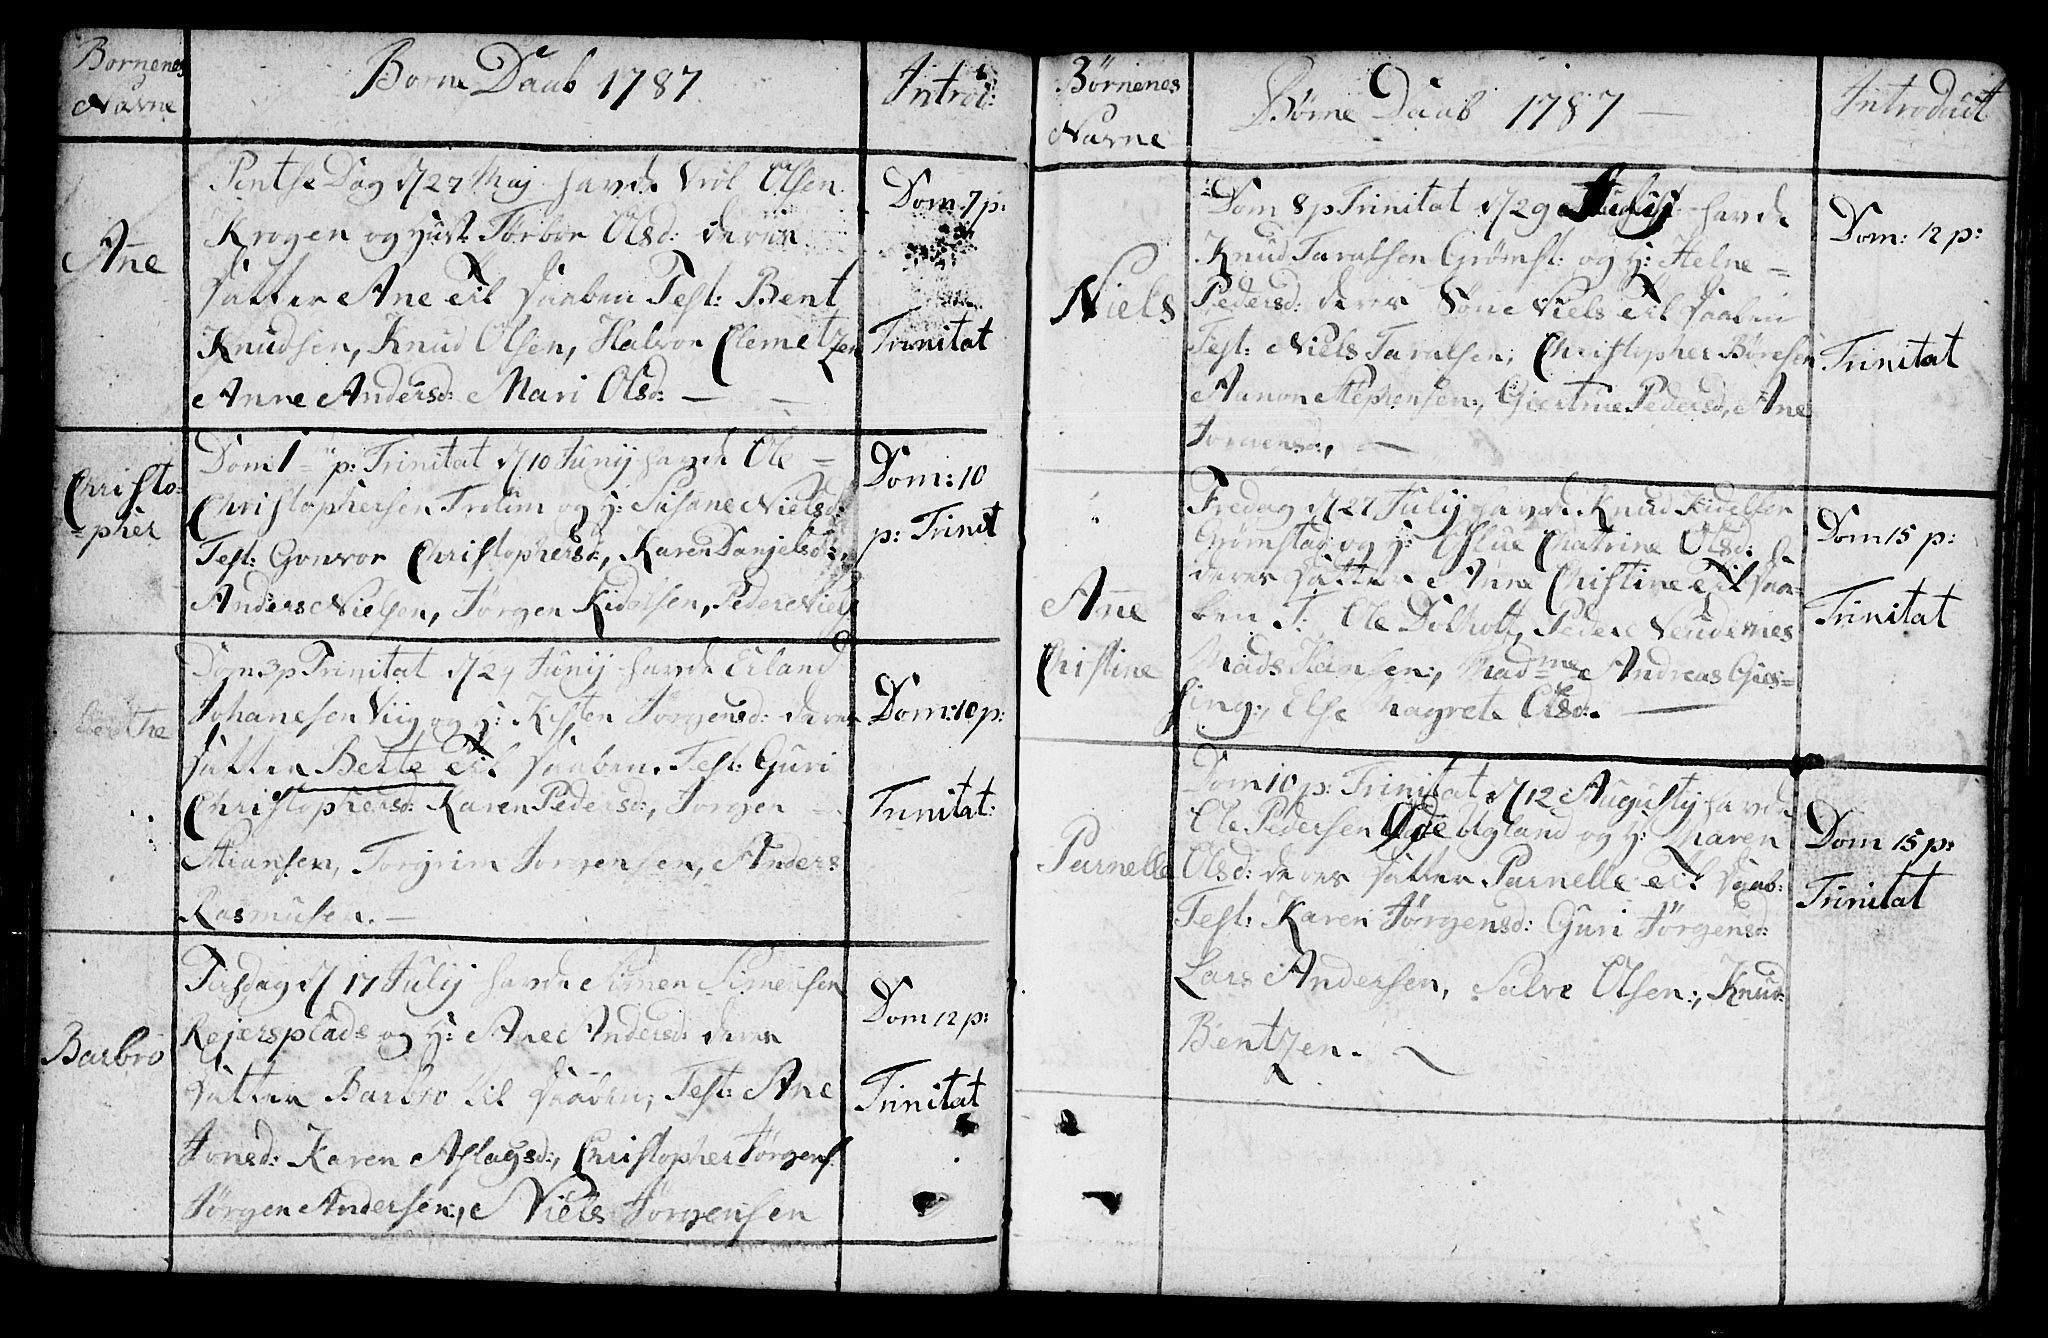 Børnenes
Navne
Børne Daab 1787
Introd:
Ane
Pintse Dag d 27 Maj havde Olsen
Krogen og Hust: Torbor Olsd: deres
datter Ane til daaben Test: Bent
Knudsen, Knud Olsen, Halvor Clemetzen
Anne Andersd: Mari Olsd: —
Dom 7 p:
Trinitat
Christo=
=pher
Dom 1 p: Trinitat d 10 Junij havde Ole =
Christophersen Trolim og H: Susane Nielsd:
Test: Gonvor Christophersd:, Karen Danjelsd:,
Anders Nielsen, Jørgen Kidelsen, Peder Niels
Dom: 10
p: Trinit
Dom 3 p Trinitat d 24 Junij havde Erland
Johanesen Viig og H: Kisten Jørgensd: deres
datter Berte til daaben. Test: Guri
Christophersd: Karen Pedersd:, Jørgen —
Stiansen, Torgrim Jørgensen, Anders
Rasmusen. —
Dom: 10 p:
Trinitat:
Barbro
Tirsdag d 17 Julij havde Simen Simensen
Rejersplads og H: Ane Andersd: deres
datter Barbro til daaben; Test: Ane
Jonsd: Karen Aslagsd:, Christopher Jørgens
Jørgen Andersen:, Niels Jørgensen
Dom 12 p:
Trinitat
Børnenes
Navne
Børne Daab 1787 —
Introduct
Niels
Dom 8 p Trinitat d 29 Julij havde
Knud Taralsen Grømst: og H: Helne =
Pedersd: deres Søn Niels til daaben
Test: Niels Taralsen, Christopher Børesen
Aanon Stephensen:, Giertrue Pedersd:, Ane
Jørgensd:, —
Dom: 12 p:
Trinitat
Ane
Christine
Fredag d 27 Julij havde Knud Kidelsen
Grømstad og H: Chatrine Olsd:
deres datter Anne Christine til daa=
ben T: Ole Dolholt, Peder
Mads Hansen:, Madme Andreas Gies=
sing:, Else Magrete Olsd:. —
Dom 15 p:
Trinitat
Parnelle
Dom 10 p: Trinitat d 12 Augustij havde
Ole Pedersen Ugland og H: Maren
Olsd: deres datter Parnelle til daab:
Test: Karen Jørgensd: Guri Jørgensd:
Lars Andersen, Salve Olsen:, Knud
Bentzen. —
Dom 15 p:
Trinitat